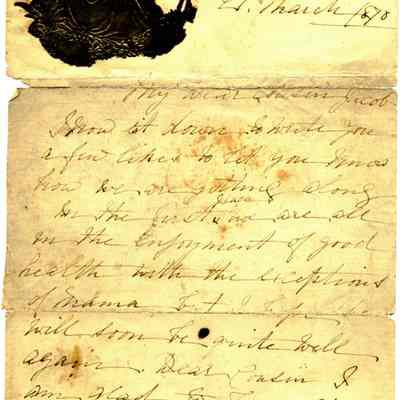 21. March 1878
My dear Cousin Jacob
I now set down to write you
a few likes to let you know
how we are getting along
In the first place we are all
in the Enjoyment of good
health with the exceptions
of Mama
will soon be quite well
again. Dear Cousin I
am glad to